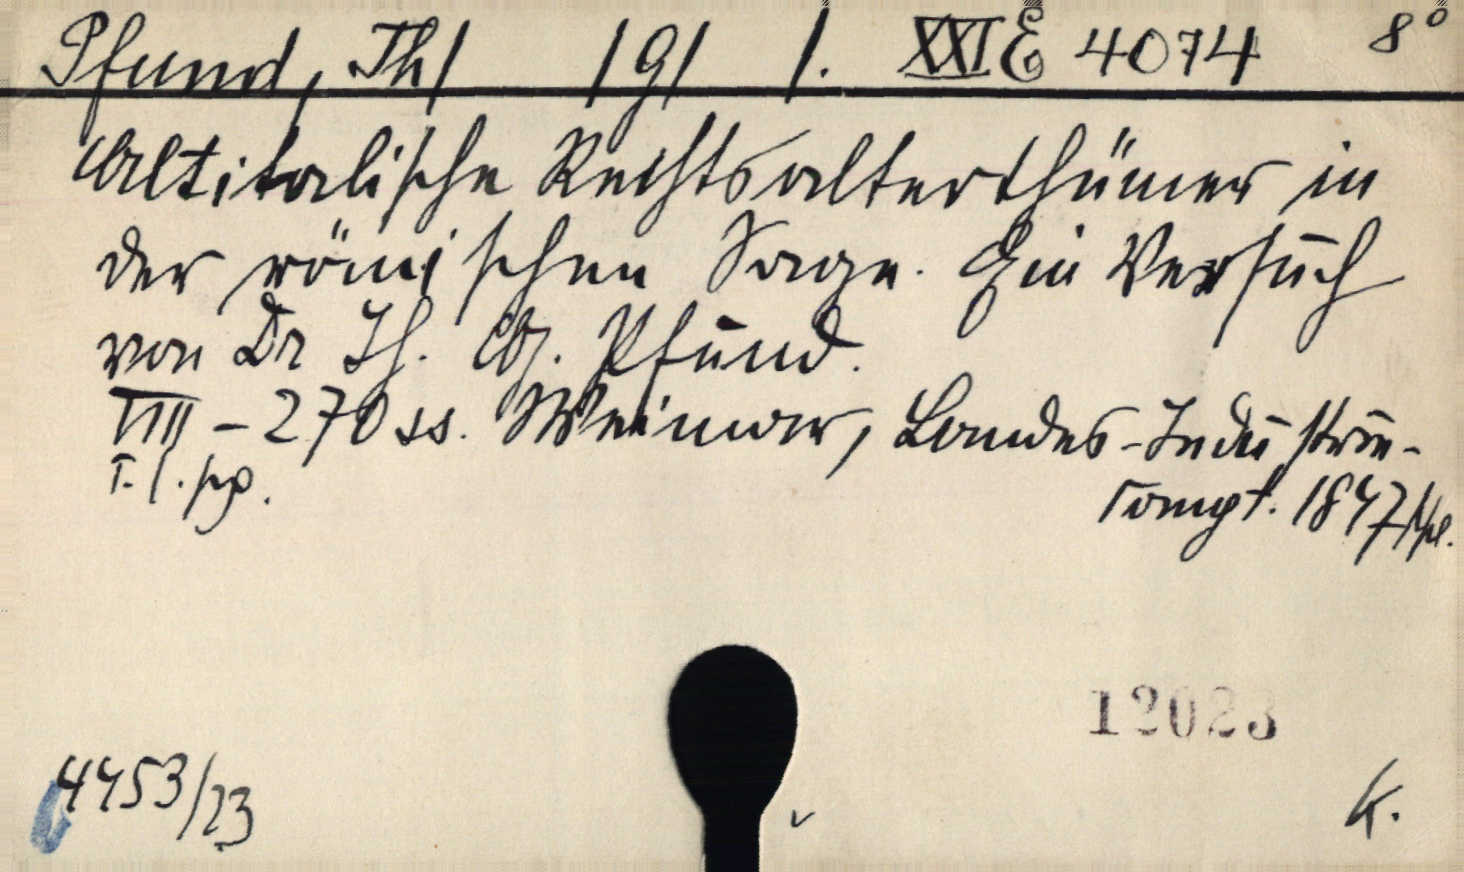 Pfund, Th/ /G/ /. XXI E 4074 8°
Altitalische Rechtsalterthümer in
der römischen Sage. Ein Versuch
von Dr Th. G. Pfund.
VIII – 270 ss. Weimar, Landes-Industrie-
Compt. 1847
12023
4453/23
K.